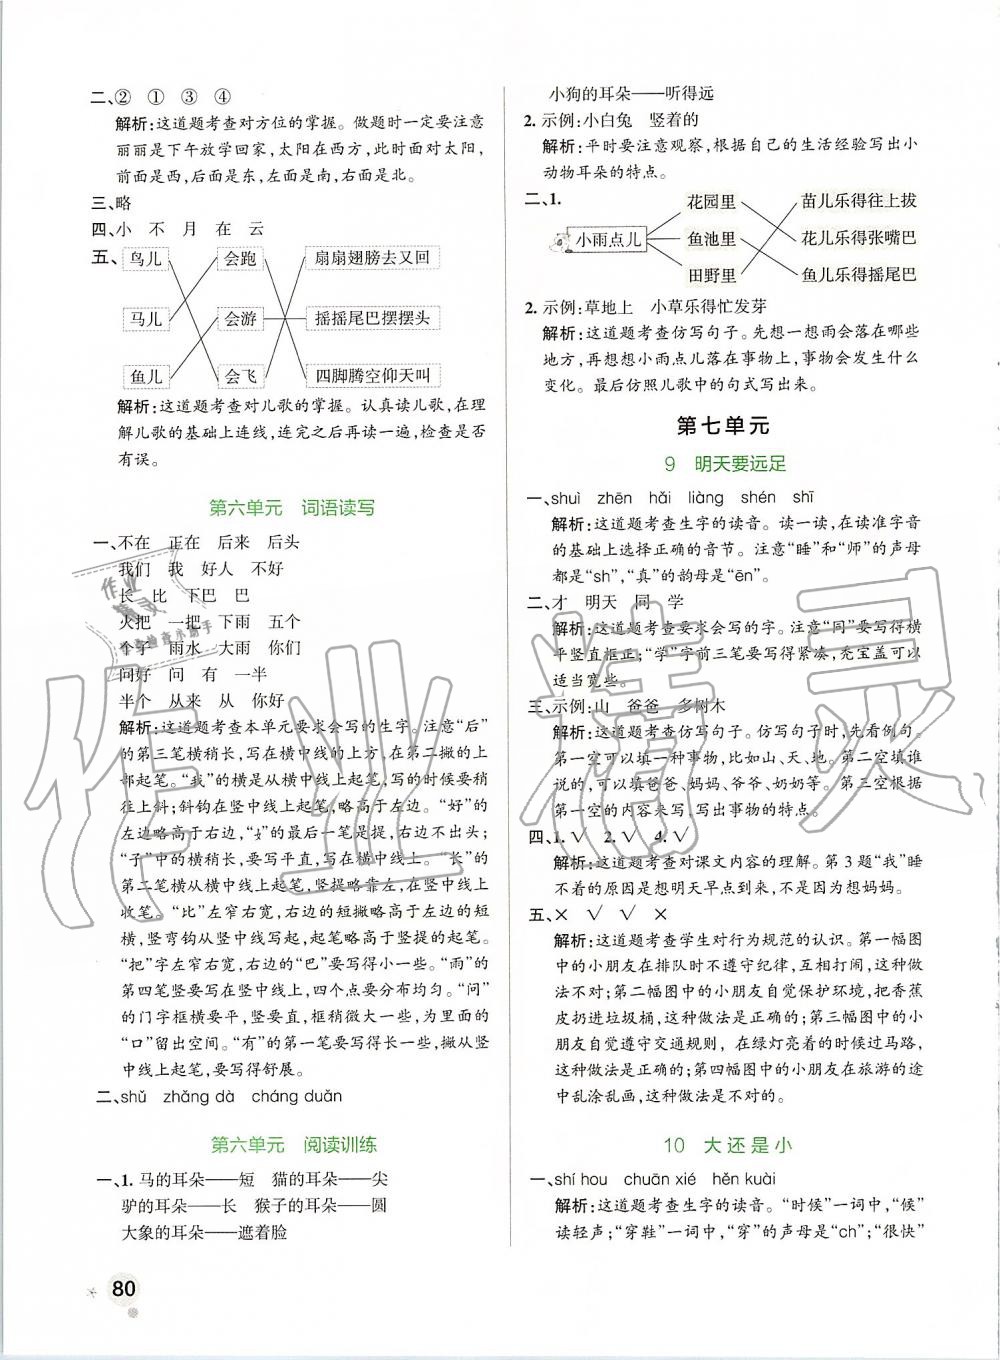 二、② ① ③ ④
解析:这道题考查对方位的掌握。做题时一定要注意
丽丽是下午放学回家,太阳在西方,此时面对太阳,
前面是西,后面是东,左面是南,右面是北。
三、略
四、小 不 月 在 云
五、鸟儿 会跑 扇扇翅膀去又回
马儿 会游 摇摇尾巴摆摆头
鱼儿 会飞 四脚腾空仰天叫
解析:这道题考查对儿歌的掌握。认真读儿歌,在理
解儿歌的基础上连线,连完之后再读一遍,检查是否
有误。
第六单元 词语读写
一、不在 正在 后来 后头
我们 我 好人 不好
长 比 下巴 巴
火把 一把 下雨 五个
个子 雨水 大雨 你们
问好 问 有 一半
半个 从来 从 你好
解析:这道题考查本单元要求会写的生字。注意“后”
的第三笔横稍长,写在横中线的上方,在第二撇的上
部起笔。“我”的横是从横中线上起笔,写的时候要稍
往上斜;斜钩在竖中线上起笔,略高于左边。“好”的
左边略高于右边,“女”的最后一笔是提,右边不出头;
“子”中的横最长,要写平直,写在横中线上。“长”的
第二笔横从横中线左边起笔,竖提略靠左,在竖中线上
收笔。“比”左窄右宽,右边的短撇略高于左边的短
横,竖弯钩从竖中线写起,起笔略高于竖提的起笔。
“把”字左窄右宽,右边的“巴”要写得小一些。“雨”的
第四笔竖要写在竖中线上,四个点要分布均匀。“问”
的门字框横要平,竖要直,框内稍微大一些,为里面的
“口”留出空间。“有”的第一笔要写得长一些,撇从竖
中线上起笔,要写得舒展。
二、shǔ zhǎng dà cháng duǎn
第六单元 阅读训练
一、1. 马的耳朵——短 猫的耳朵——尖
驴的耳朵——长 猴子的耳朵——圆
大象的耳朵——遮着脸
80
小狗的耳朵——听得远
2. 示例:小白兔 竖着的
解析:平时要注意观察,根据自己的生活经验写出小
动物耳朵的特点。
二、1.
花园里 苗儿乐得往上拔
小雨点儿 鱼池里 花儿乐得张嘴巴
田野里 鱼儿乐得摇尾巴
2. 示例:草地上 小草乐得忙发芽
解析:这道题考查仿写句子。先想一想雨会落在哪些
地方,再想想小雨点儿落在事物上,事物会发生什么
变化。最后仿照儿歌中的句式写出来。
第七单元
9 明天要远足
一、shuì zhēn hǎi liàng shén shī
解析:这道题考查生字的读音。读一读,在读准字音
的基础上选择正确的音节。注意“睡”和“师”的声母
都是“sh”,“真”的韵母是“ēn”。
二、才 明天 同 学
解析:这道题考查要求会写的字。注意“同”要写得横
平竖直框正;“学”字前三笔要写得紧凑,秃宝盖可以
适当宽些。
三、示例:山 爸爸 多树木
解析:这道题考查仿写句子。仿写句子时,先看例句。
第一空可以填一种事物,比如山、天、地。第二空填谁
说的,可以填爸爸、妈妈、爷爷、奶奶等。第三空根据
第一空的内容来写,写出事物的特点。
四、1. √ 2. √ 4. √
解析:这道题考查对课文内容的理解。第 3 题“我”睡
不着的原因是想明天早点到来,不是因为想妈妈。
五、× √ √ ×
解析:这道题考查学生对行为规范的认识。第一幅图
中的小朋友在排队时不遵守纪律,互相打闹,这种做
法不对;第二幅图中的小朋友自觉保护环境,把香蕉
皮扔进垃圾桶,这种做法是正确的;第三幅图中的小
朋友自觉遵守交通规则,在绿灯亮着的时候过马路,
这种做法是正确的;第四幅图中的小朋友在旅游的途
中乱涂乱画,这种做法是不对的。
10 大还是小
一、shí hou chuān xié hěn kuài
解析:这道题考查生字的读音。“时候”一词中,“候”
读轻声;“穿鞋”一词中,“穿”的声母是“ch”;“很快”
作业精灵